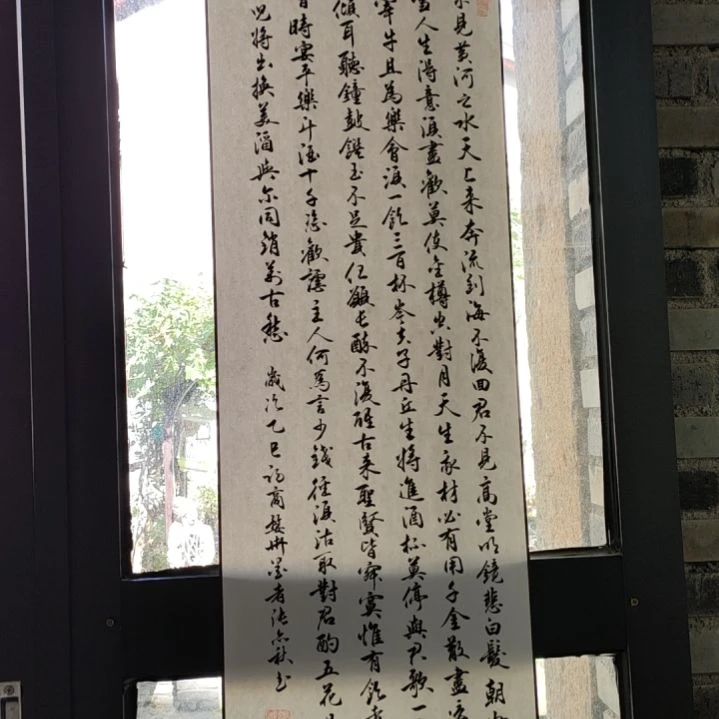 不見黄河之水天上来奔流到海不復回君不見高堂明鏡悲白髮朝
雪人生得意須盡歡莫使金樽空對月天生我材必有用千金散盡還
宰牛且為樂會須一飲三百杯岑夫子丹丘生將進酒杯莫停與君歌一
傾耳聽鐘鼓饌玉不足貴但願長醉不復醒古来聖賢皆寂寞惟有飲者
昔時宴平樂斗酒十千恣歡謔主人何為言少錢徑須沽取對君酌五花
兒將出換美酒與尔同銷萬古愁 歲次乙巳